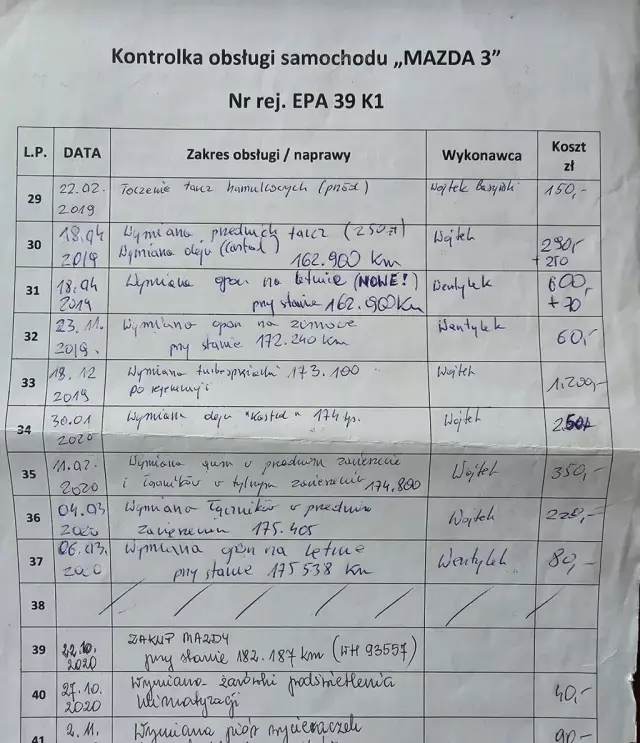 Kontrolka obsługi samochodu „MAZDA 3”
Nr rej. EPA 39 K1
L.P. DATA Zakres obsługi / naprawy Wykonawca Koszt zł
29 22.02. 2019 Toczenie tarcz hamulcowych (przód) Wojtek 150,-
30 18.04 2019 Wymiana przednich tarcz (250zł) Wojtek 290,-
Wymiana oleju (Castrol) 162.900 km + 250
31 18.04 2019 Wymiana opon na letnie (NOWE!) Wentylek 600,-
przy stanie 162.900 Km + 70
32 23.11. 2019. Wymiana opon na zimowe Wentylek 60,-
przy stanie 172.240 Km
33 18.12 2019 Wymiana turbosprężarki 173.100 Wojtek 1.200,-
po regeneracji
34 30.01 2020 Wymiana oleju "Kastrol" 174 tys. Wojtek 250,-
35 11.02. 2020 Wymiana gum w przednim zawieszenie Wojtek 350,-
i łączników w tylnym zawieszeniu 174.800
36 04.03 2020 Wymiana łączników w przednim Wojtek 220,-
zawieszeniu 175.405
37 06.03. 2020 Wymiana opon na letnie Wentylek 80,-
przy stanie 175538 Km
38
39 22.10. 2020 ZAKUP MAZDY
przy stanie 182.187 km (WH 93557)
40 27.10. 2020 Wymiana żarówki podświetlenia 40,-
klimatyzacji
41 2.11. Wymiana piór wycieraczek 90,-